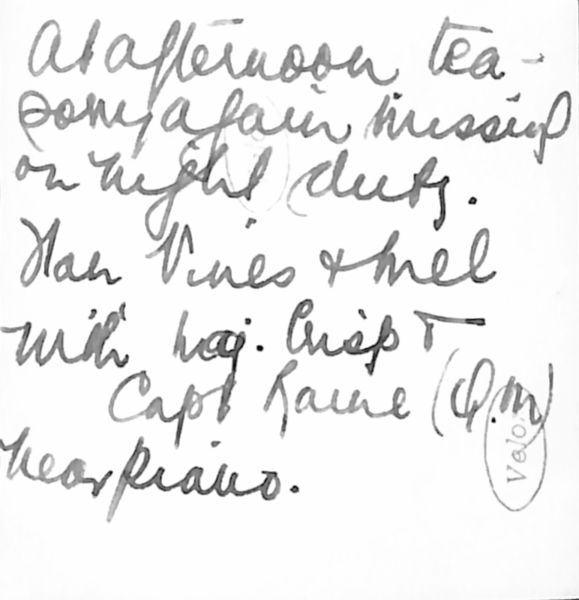 At afternoon tea -
some again missing
on night duty.
Nan Vines & Mel
with Maj. Crisp &
Capt Raine (Q.M)
near piano.
Velox